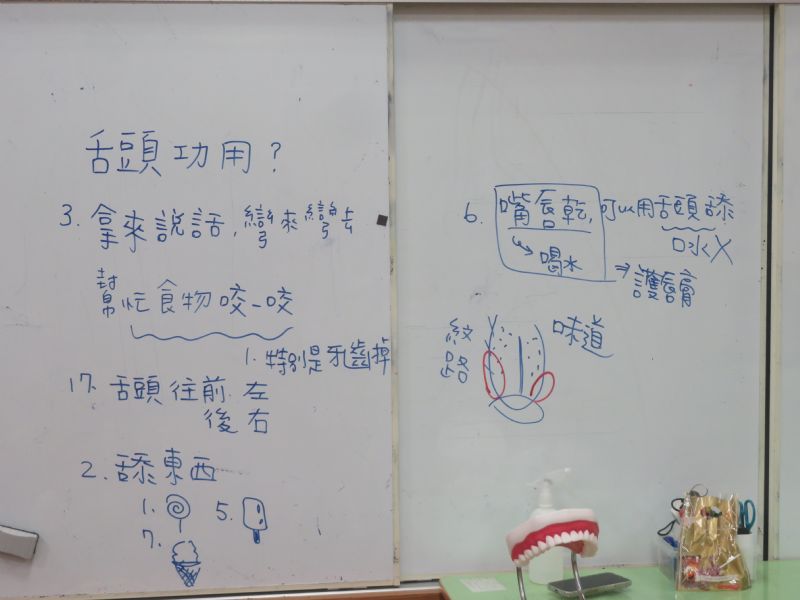 舌頭功用?
3. 拿來說話,彎來彎去
幫忙食物咬一咬
1. 特別是牙齒掉
17. 舌頭往前 左
後 右
2. 舔東西
1.
5.
7.
6. 嘴唇乾,可以用舌頭舔
口水X
喝水
⇒護唇膏
紋路
味道